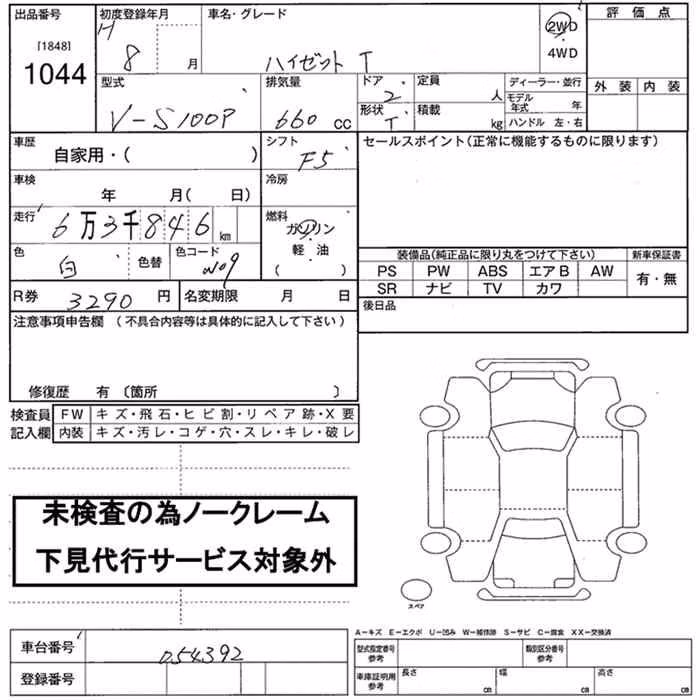 出品番号 初度登録年月 車名・グレード 2WD 評価点
[1848] H
1044 8 月 ハイゼット T 4WD
型式 排気量 ドア 定員 ディーラー・並行 外装 内装
2 人 モデル年式 年
V-S100P 660 cc 形状 積載 ハンドル 左・右
T kg
車歴 シフト セールスポイント(正常に機能するものに限ります)
自家用・( ) F5
車検 冷房
年 月( 日)
走行 燃料
6万3千846 km ガソリン
色 色替 色コード 軽・油
白 W09 ( )
装備品(純正品に限り丸をつけて下さい) 新車保証書
PS PW ABS エアB AW 有・無
SR ナビ TV カワ
R券 3290 円 名変期限 月 日 後日品
注意事項申告欄 (不具合内容等は具体的に記入して下さい)
修復歴 有 〔箇所 〕
検査員 FW キズ・飛石・ヒビ割・リペア跡・X要
記入欄 内装 キズ・汚レ・コゲ・穴・スレ・キレ・破レ
未検査の為ノークレーム
下見代行サービス対象外
スペア
A-キズ E-エクボ U-凹み W-補修跡 S-サビ C-腐食 XX-交換済
車台番号 054392 型式指定番号 参考 類別区分番号 参考
登録番号 車庫証明用 参考 長さ cm 幅 cm 高さ cm